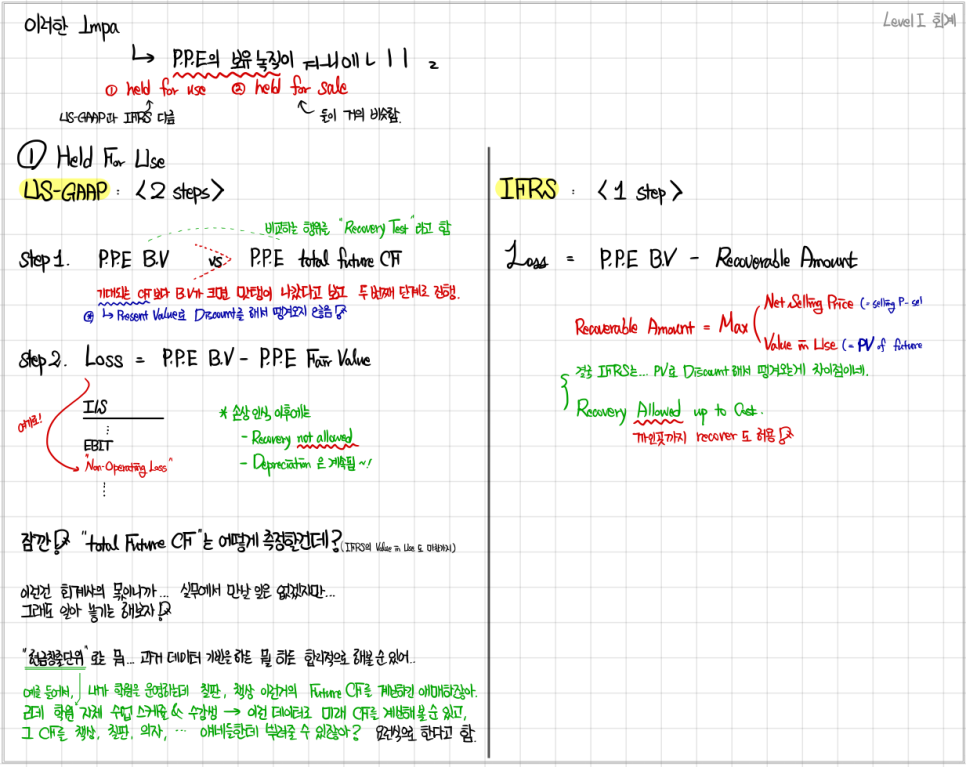 Level I 회계
이러한 Impa
↳ P.P.E의 보유 목적이
① held for use ② held for sale
US-GAAP과 IFRS 다름
둘이 거의 비슷함.
① Held For Use
US-GAAP : <2 steps>
비교하는 행위를 "Recovery Test"라고 함
Step 1. P.P.E B.V vs P.P.E total future CF
기대되는 CF보다 B.V가 크면 맛탱이 나갔다고 보고 두 번째 단계로 진행.
↳ Present Value로 Discount를 해서 땡겨오지 않음!
Step 2. Loss = P.P.E B.V - P.P.E Fair Value
여기로!
I/S
⋮
EBIT
"Non-Operating Loss"
⋮
* 손상 인식 이후에는
- Recovery not allowed
- Depreciation 은 계속됨~!
잠깐! "total Future CF"는 어떻게 측정할건데? (IFRS의 Value in Use 도 마찬가지)
이런건 회계사의 몫이니까... 실무에서 만날 일은 없겠지만...
그래도 알아 놓기는 해보자!
"현금창출단위" 로 뭐... 과거 데이터 기반을 하든 뭘 하든 합리적으로 해볼 순 있어..
예를 들어서, 내가 학원을 운영하는데 칠판, 책상 이런거의 Future CF를 계산하긴 애매하잖아.
근데 학원 자체 수업 스케쥴 & 수강생 → 이런 데이터로 미래 CF를 계산해볼 순 있고,
그 CF를 책상, 칠판, 의자, ... 얘네들한테 뿌려줄 수 있잖아? 요런식으로 한다고 함.
IFRS : <1 step>
Loss = P.P.E B.V - Recoverable Amount
Recoverable Amount = Max
Net Selling Price (= selling P - sel
Value in Use (= PV of future
결국 IFRS는... PV로 Discount 해서 땡겨오는게 차이점이네.
Recovery Allowed up to Cost.
까인곳까지 recover 도 허용!